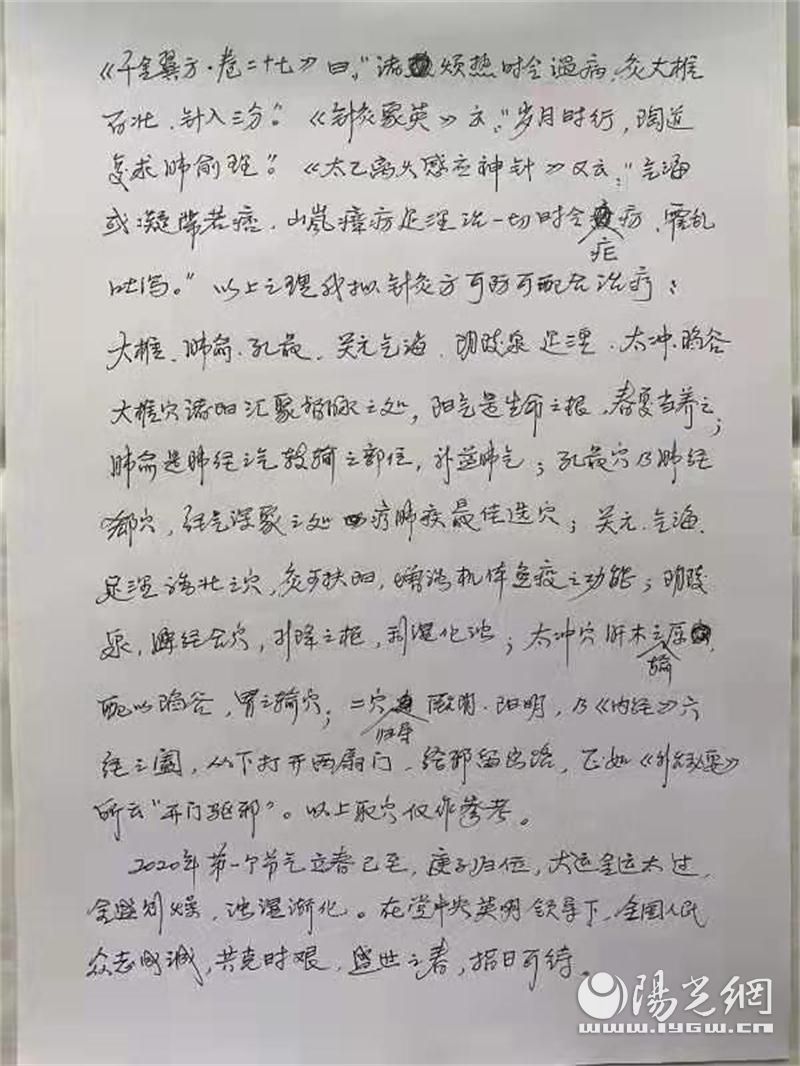 《千金翼方·卷二十七》曰:"诸烦热时令温病,灸大椎
百壮,针入三分"。《针灸聚英》云:"岁月时行,陶道
复求肺俞理"。《太乙离火感应神针》又云:"气海
或凝滞若痞,山岚瘴疠足理治一切时令疠,霍乱
疟
吐泻。"以上之理我拟针灸方可防可配合治疗:
大椎、肺俞、孔最、关元气海、阴陵泉 足三里、太冲、陷谷
大椎穴诸阳汇聚督脉之处,阳气是生命之根,春夏当养之;
肺俞是肺经之气转输之部位,补益肺气;孔最穴乃肺经
郄穴,经气深聚之处 疗肺疾最佳选穴;关元、气海、
足三里 强壮之穴,灸可扶阳,增强机体免疫之功能;阴陵
泉,脾经合穴,升降之枢,利湿化浊;太冲穴 肝木之原
输
配以陷谷,胃之输穴;二穴 厥阴、阳明,乃《内经》六
归导
经之阖,从下打开两扇门,给邪留出路,正如《外台秘要》
所云"开门驱邪"。以上取穴仅作参考。
2020年第一个节气立春已至,庚子归位,大运金运太过,
金盛则燥,浊湿渐化。在党中央英明领导下,全国人民
众志成城,共克时艰,盛世之春,指日可待。
陽光網
www.iygw.cn